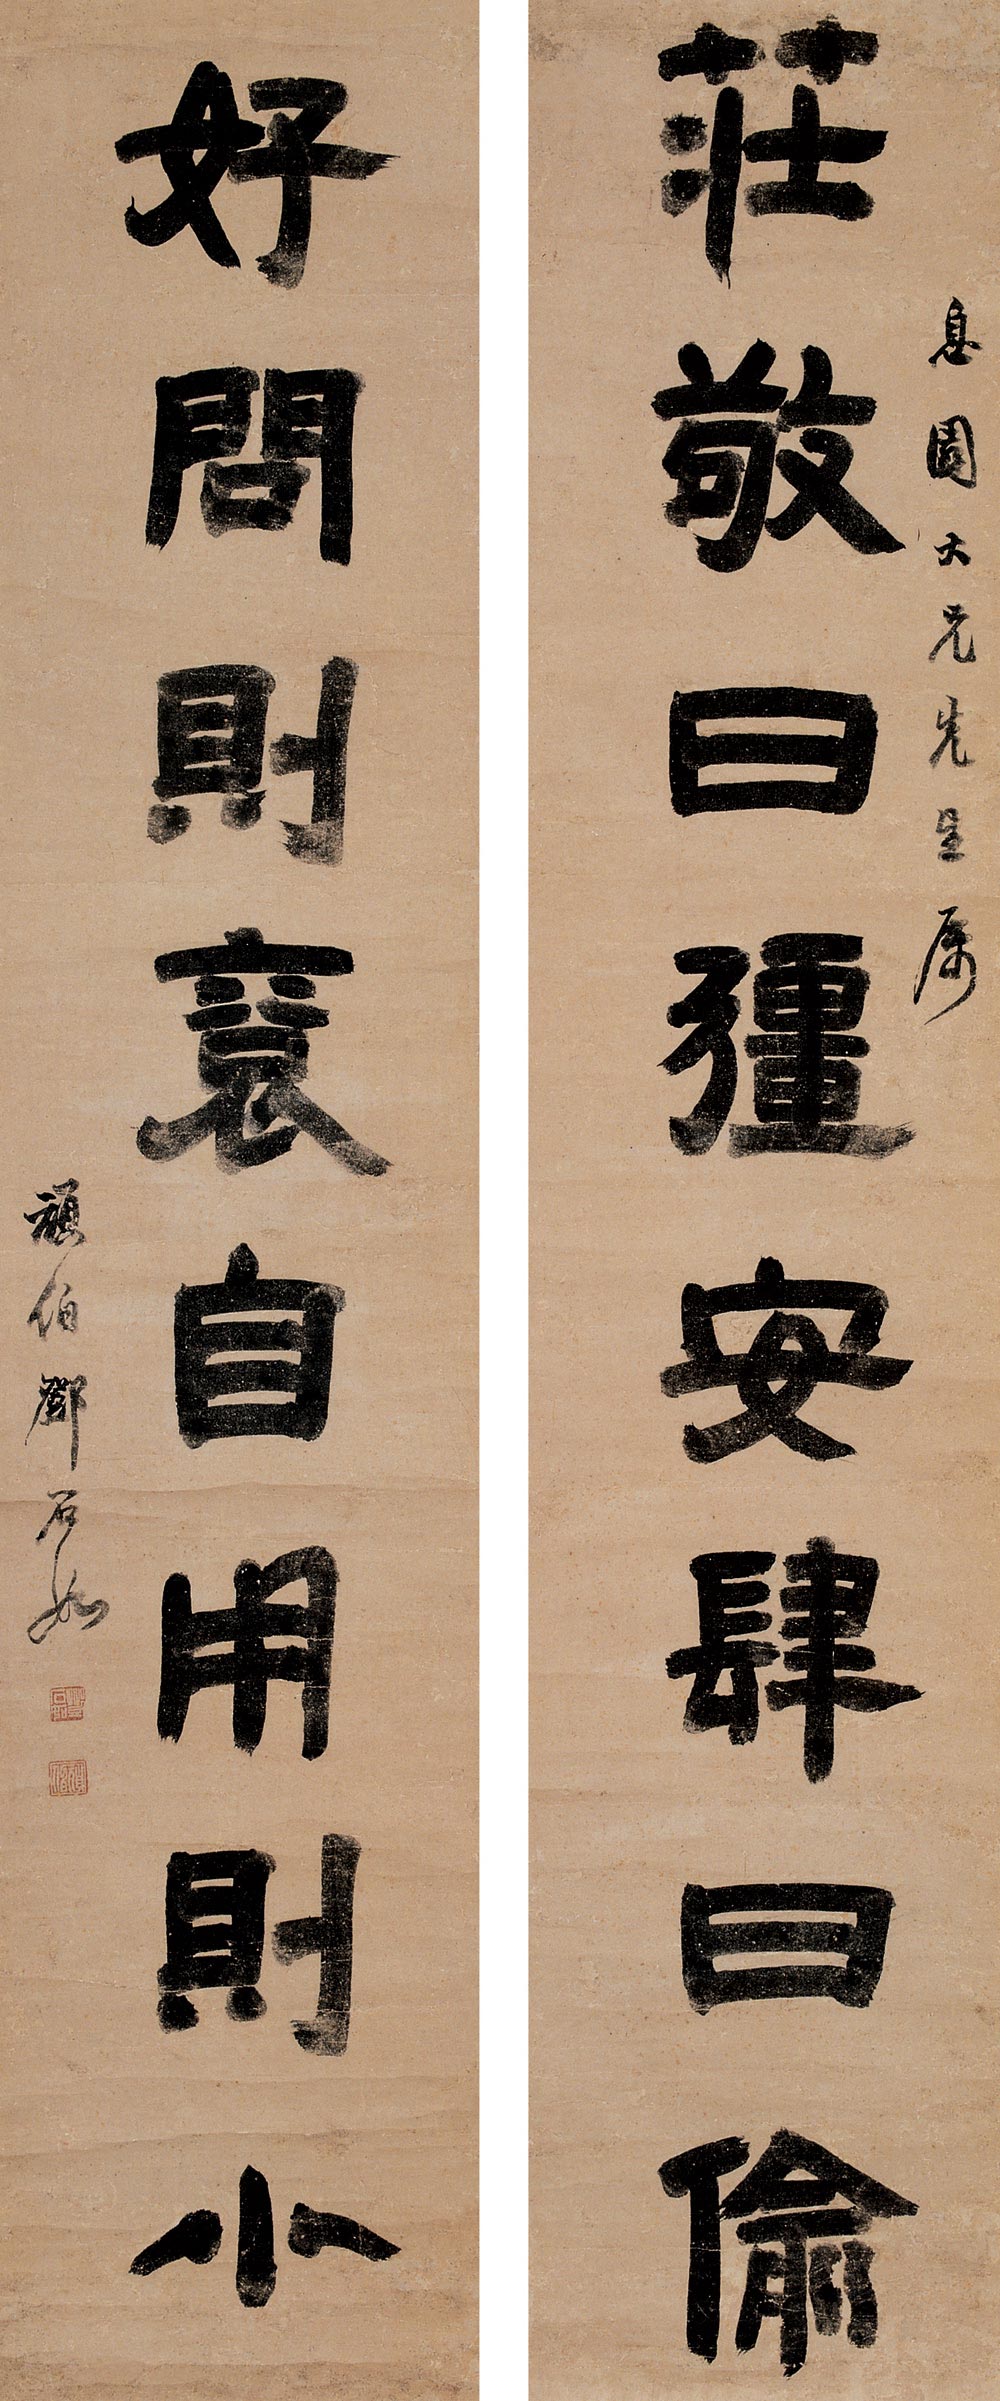 息園大兄先生属
莊敬日彊安肆日偷
好問則裦自用則小
頑伯鄧石如